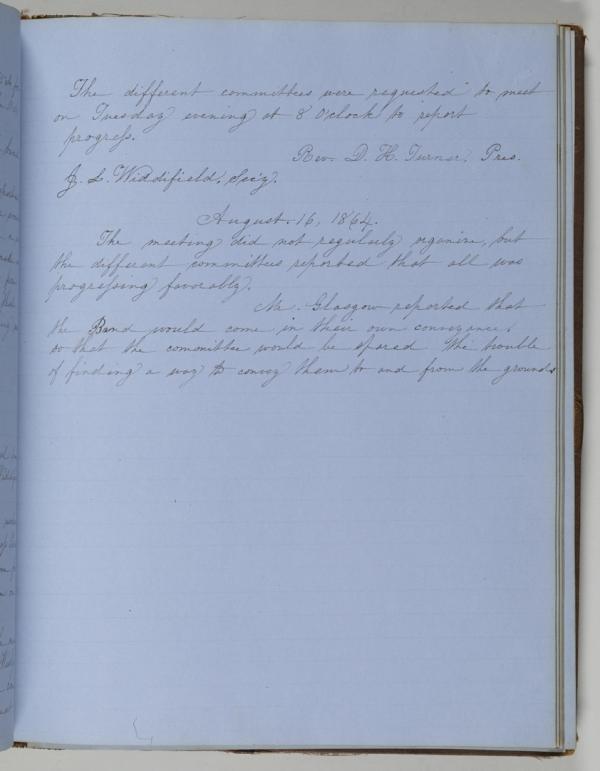 The different committees were requested to meet
on Tuesday evening at 8 O'clock to report
progress.
Rev. D. H. Turner, Pres.
J. L. Widdifield, Sec'y.
August. 16, 1864.
The meeting did not regularly organize, but
the different committees reported that all was
progressing favorably.
Mr. Glasgow reported that
the Band would come in their own conveyance,
so that the committee would be spared the trouble
of finding a way to convey them to and from the grounds